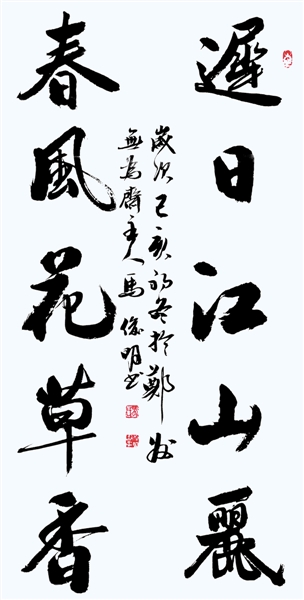 遲日江山麗
春風花草香
歲次己亥初冬於鄭州
無為齋主人馬俊明書